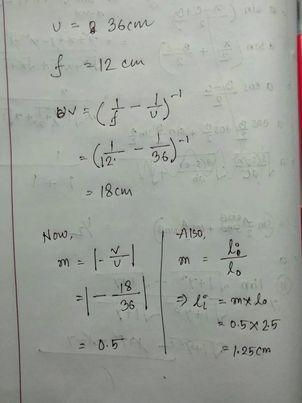 u = 36cm
f = 12 cm
v = (1/f - 1/u)^-1
= (1/12. - 1/36)^-1
= 18cm
Now,
m = |- v/u|
= |- 18/36|
= 0.5
Also,
m = li/lo
⇒ li = m x lo
= 0.5 x 2.5
= 1.25cm